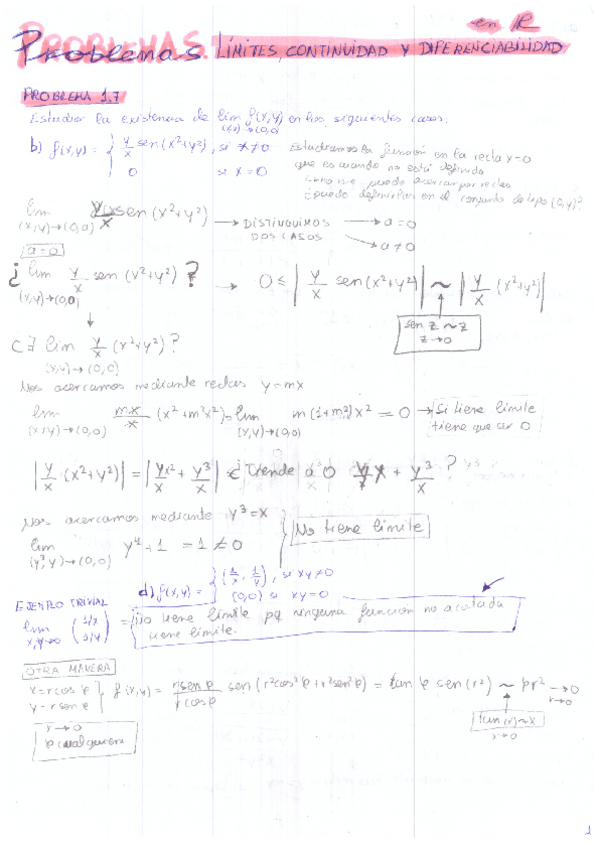 en ℝ
PROBLEMAS. LÍMITES, CONTINUIDAD Y DIFERENCIABILIDAD
PROBLEMA 1.7
Estudiar la existencia de lim f(x,y) en los siguientes casos.
(x,y)→(0,0)
b) f(x,y) = { y/x sen(x²+y²), si x≠0
0 si x=0
Estudiamos la función en la recta x=0
que es cuando no está definida
como me puedo acercar por rectas
¿puedo definirlas en el conjunto de tipo (0,y)?
lim y/x sen(x²+y²) → DISTINGUIMOS DOS CASOS → a=0
(x,y)→(0,a) → a≠0
a=0
¿ lim y/x sen(x²+y²) ? → 0 ≤ | y/x sen(x²+y²) | ~ | y/x (x²+y²) |
(x,y)→(0,0)
sen z ~ z
z→0
¿∃ lim y/x (x²+y²)?
(x,y)→(0,0)
Nos acercamos mediante rectas y=mx
lim mx/x (x²+m²x²) = lim m(1+m²)x² = 0 → Si tiene límite
(x,y)→(0,0) (x,y)→(0,0) tiene que ser 0
| y/x (x²+y²) | = | yx² + y³/x | ¿Tiende a 0 yx + y³/x ?
Nos acercamos mediante y³=x
lim y⁴+1 = 1 ≠ 0 } No tiene límite
(y³,y)→(0,0)
d) f(x,y) = { (1/x, 1/y), si xy≠0
(0,0) si xy=0
EJEMPLO TRIVIAL
lim (1/x 1/y) = No tiene límite pq ninguna función no acotada
x,y→0 tiene límite.
OTRA MANERA
x=r cos φ
y=r sen φ } f(x,y) = r sen φ/r cos φ sen(r²cos²φ+r²sen²φ) = tan φ sen(r²) ~ φr² → 0
r→0
r→0
φ cualquiera
tan(x)~x
x→0
1